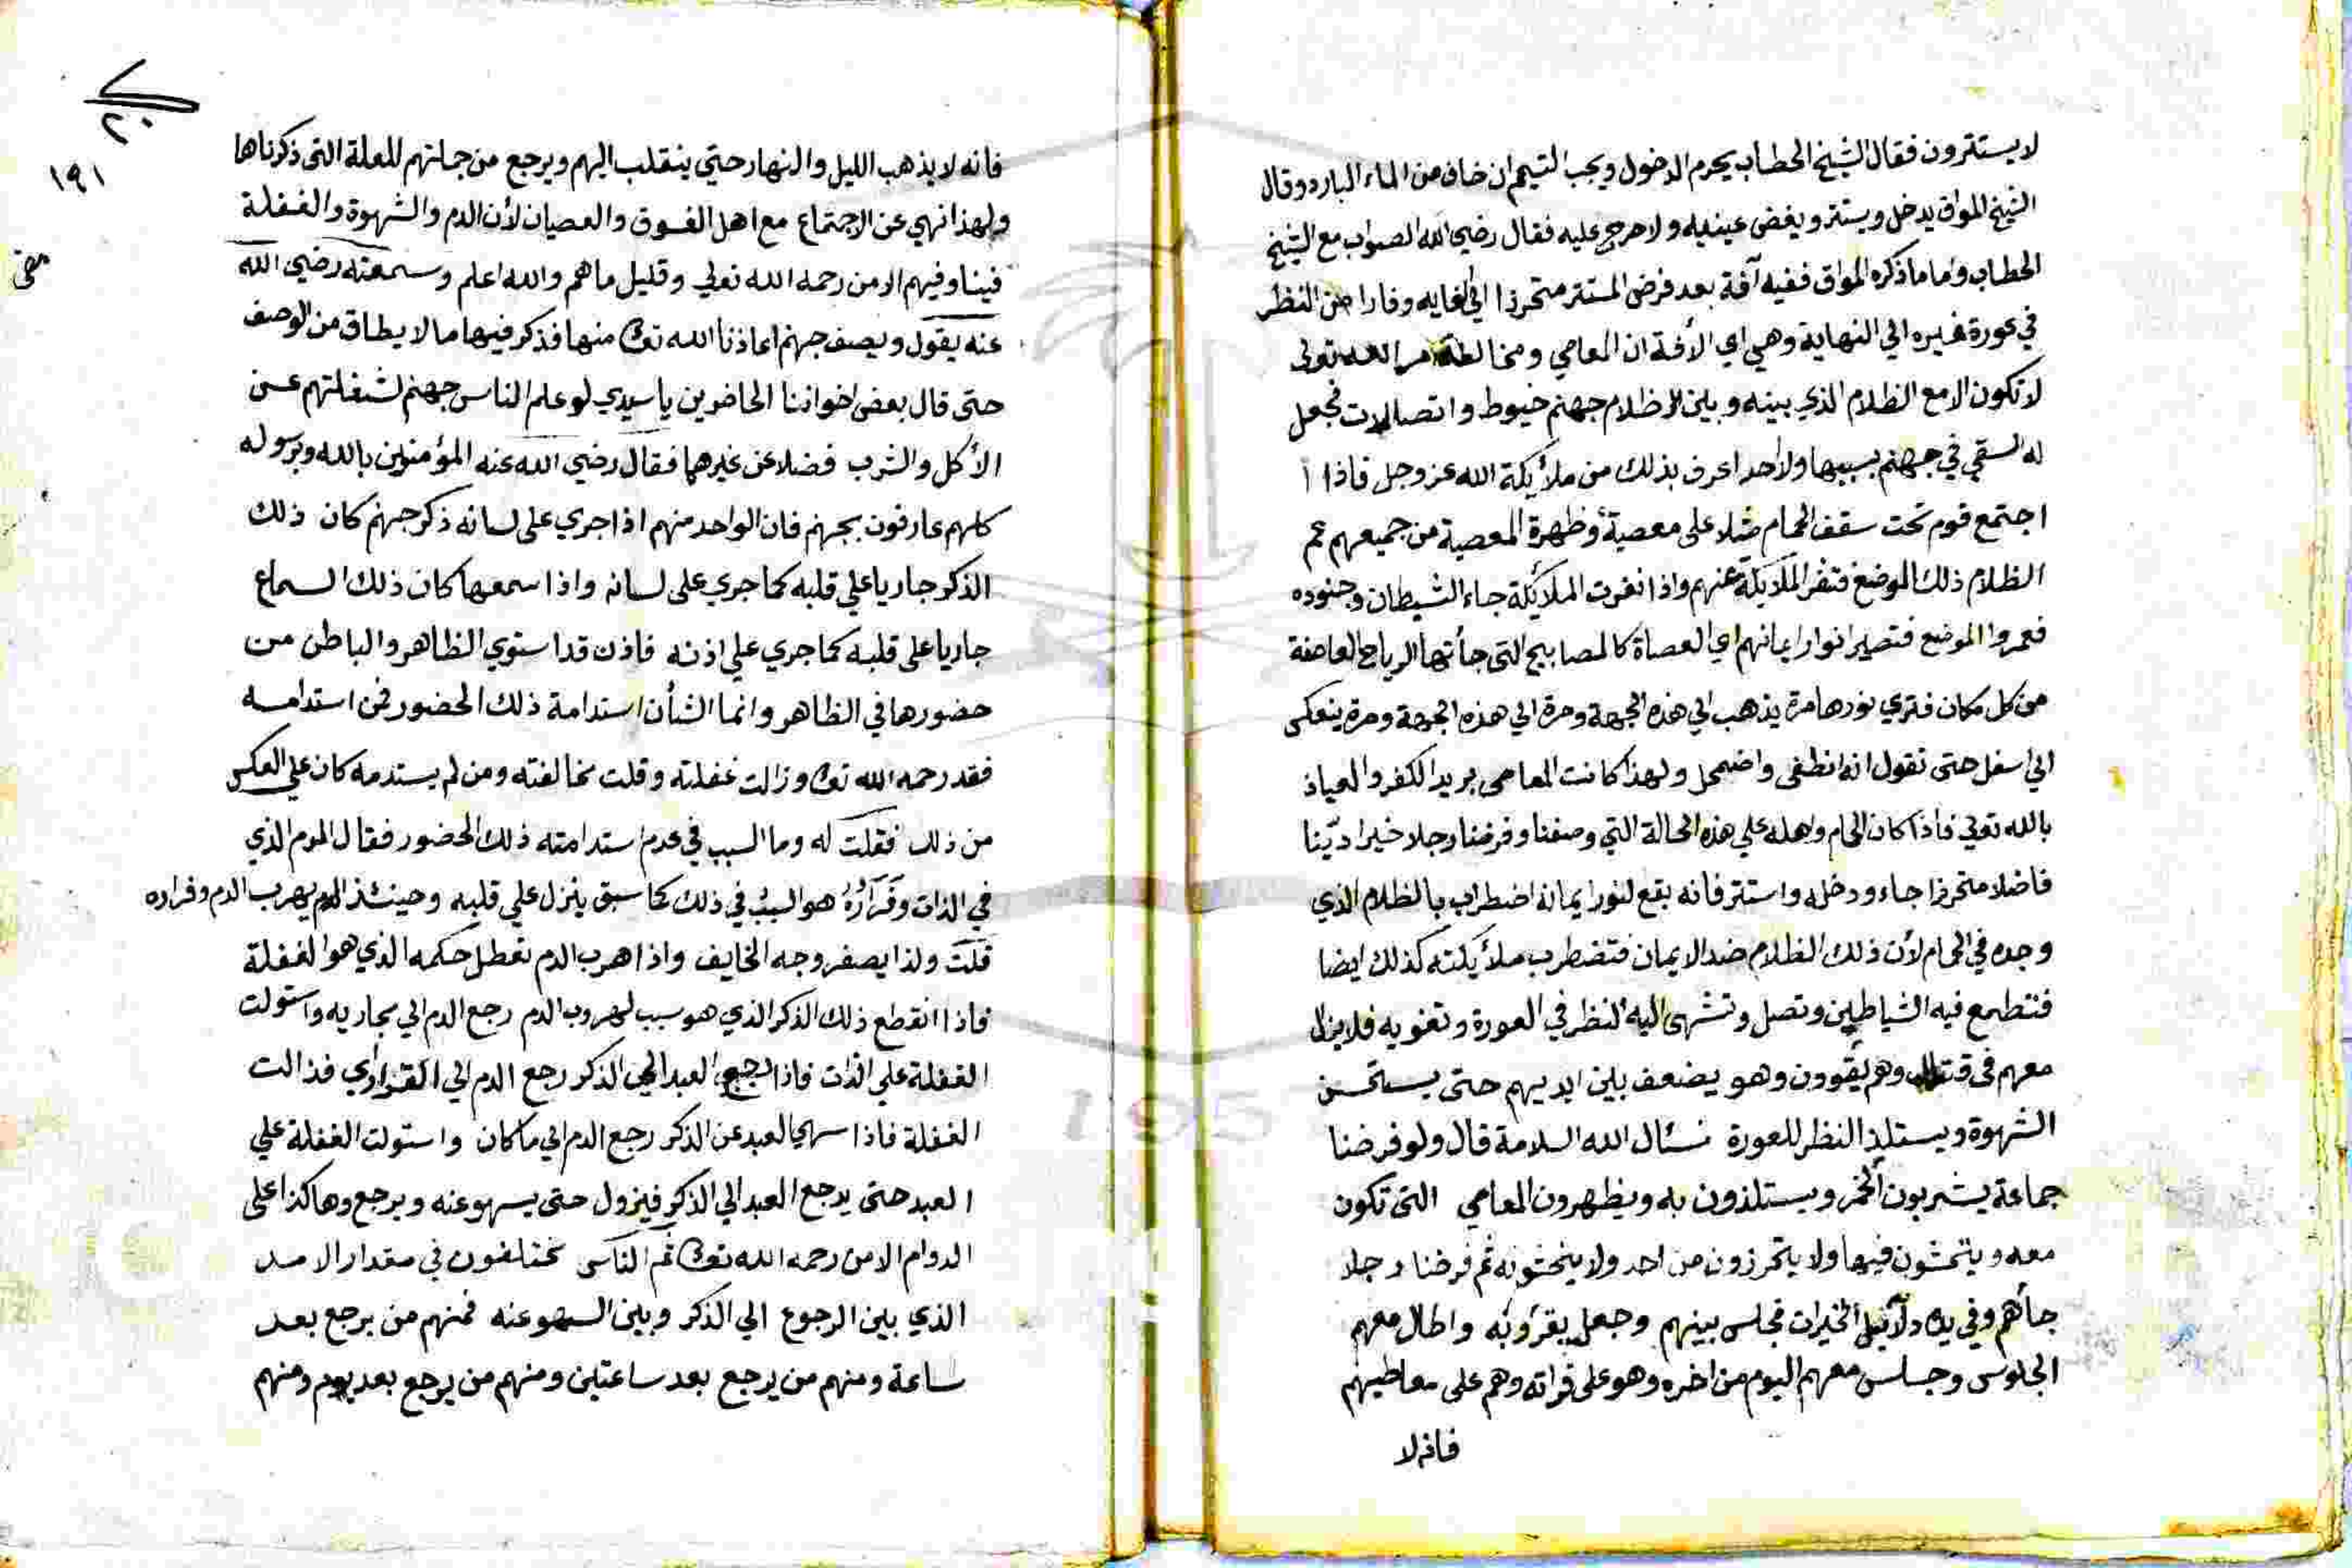 لا يستترون فقال الشيخ الحطاب يحرم الدخول ويجب التيمم ان خاف من الماء البارد وقال
الشيخ المواق يدخل ويستتر ويغض عينيه ولا حرج عليه فقال رضي الله الصواب مع الشيخ
الحطاب واما ما ذكره المواق ففيه آفة بعد فرض المستتر متحرزا الى الغايه وفارا من النظر
في عورة غيره الي النهاية وهي اي الأفة ان المعاصي ومخالطة مر الله تعولى
لا تكون الا مع الظلام الذي بينه وبين الاظلام جهنم خيوط واتصالات فجعل
له السقي في جهنم بسببها ولا احد اعرف بذلك من ملأيكة الله عز وجل فاذا ا
اجتمع قوم تحت سقف الحمام مثلا على معصية وظهرة المعصية من جميعهم عم
الظلام ذلك الموضع فتنفر الملايكة عنهم واذا نفرت الملايكة جاء الشيطان وجنوده
فعمروا الموضع فتصير انوار ايمانهم اي العصاة كالمصابيح التى جأتها الرياح العاصفة
من كل مكان فتري نورها مرة يذهب الي هذه الجهة ومرة الي هذه الجهة ومرة ينعكس
الي اسفل حتى تقول انه انطفى واضمحل ولهذا كانت المعاصى بريد الكفر والعياذ
بالله تعولي فاذا كان الحمام واهله علي هذه الحالة التي وصفنا وفرضنا رجلا خيرا ديّنا
فاضلا متحرزا جاء ودخله واستتر فانه يقع لنور ايمانه اضطراب بالظلام الذي
وجده في الحمام لأن ذلك الظلام ضد الايمان فتضطرب ملأيكته كذلك ايضا
فتطمع فيه الشياطين وتصل وتشهى اليه النظر في العورة وتغويه فلا يزال
معهم فى قتال وهم يقوون وهو يضعف بين ايديهم حتى يستحسن
الشهوة ويستلذ النظر للعورة نسئال الله السلامة قال ولو فرضنا
جماعة يشربون الخمر ويستلذون به ويظهرون المعاصي التى تكون
معه ويتحشون فيها ولا يتحرزون من احد ولا يخشونه ثم فرضنا رجلا
جأهم وفي يده دلآئيل الخيرات فجلس بينهم وجعل يقرؤبه واطال معهم
الجلوس وجلس معهم اليوم من اخره وهو على قراته وهم على معاطيهم
فانه لا
٢٠
١٩١
فانه لا يذهب الليل والنهار حتي ينقلب اليهم ويرجع من جملتهم للعلة التى ذكرناها
ولهذا نهي عن الاجتماع مع اهل الفسوق والعصيان لأن الدم والشهوة والغفلة
فينا وفيهم الا من رحمه الله تعولي وقليل ما هم والله اعلم وسمعته رضي الله
عنه يقول ويصف جهنم اعاذنا الله تعا منها فذكر فيها ما لا يطاق من الوصف
حتى قال بعض اخواننا الحاضرين يا سيدي لو علم الناس جهنم لشغلتهم عن
الأكل والشرب فضلا عن غيرهما فقال رضي الله عنه المؤمنين بالله وبرسوله
كلهم عارفون بجهنم فان الواحد منهم اذا جري على لسانه ذكر جهنم كان ذلك
الذكر جاريا علي قلبه كما جري على لسانه واذا سمعها كان ذلك السماع
جاريا على قلبه كما جري علي اذنه فاذن قد استوي الظاهر والباطن من
حضورها في الظاهر وانما الشأن استدامة ذلك الحضور فمن استدامه
فقد رحمه الله تعا وزالت غفلته وقلت مخالفته ومن لم يستدمه كان علي العكس
من ذلك فقلت له وما السبب في عدم استدامته ذلك الحضور فقال الدم الذي
في الذات وقراره هو السبب في ذلك كما سبق ينزل علي قلبه وحينئذ الدم يهرب الدم وقراره
قلت ولذا يصفر وجه الخايف واذا هرب الدم تعطل حكمه الذي هو الغفلة
فاذا انقطع ذلك الذكر الذي هو سبب لهروب الدم رجع الدم الي مجاريه واستولت
الغفلة علي الذات فاذا رجع العبد الي الذكر رجع الدم الي القراري فزالت
الغفلة فاذا سهي العبد عن الذكر رجع الدم الي ما كان واستولت الغفلة علي
العبد حتى يرجع العبد الي الذكر فيزول حتى يسهو عنه ويرجع وهاكذا على
الدوام الا من رحمه الله تعا ثم الناس مختلفون في مقدار الامد
الذي بين الرجوع الي الذكر وبين السهو عنه فمنهم من يرجع بعد
ساعة ومنهم من يرجع بعد ساعتين ومنهم من يرجع بعد يوم ومنهم